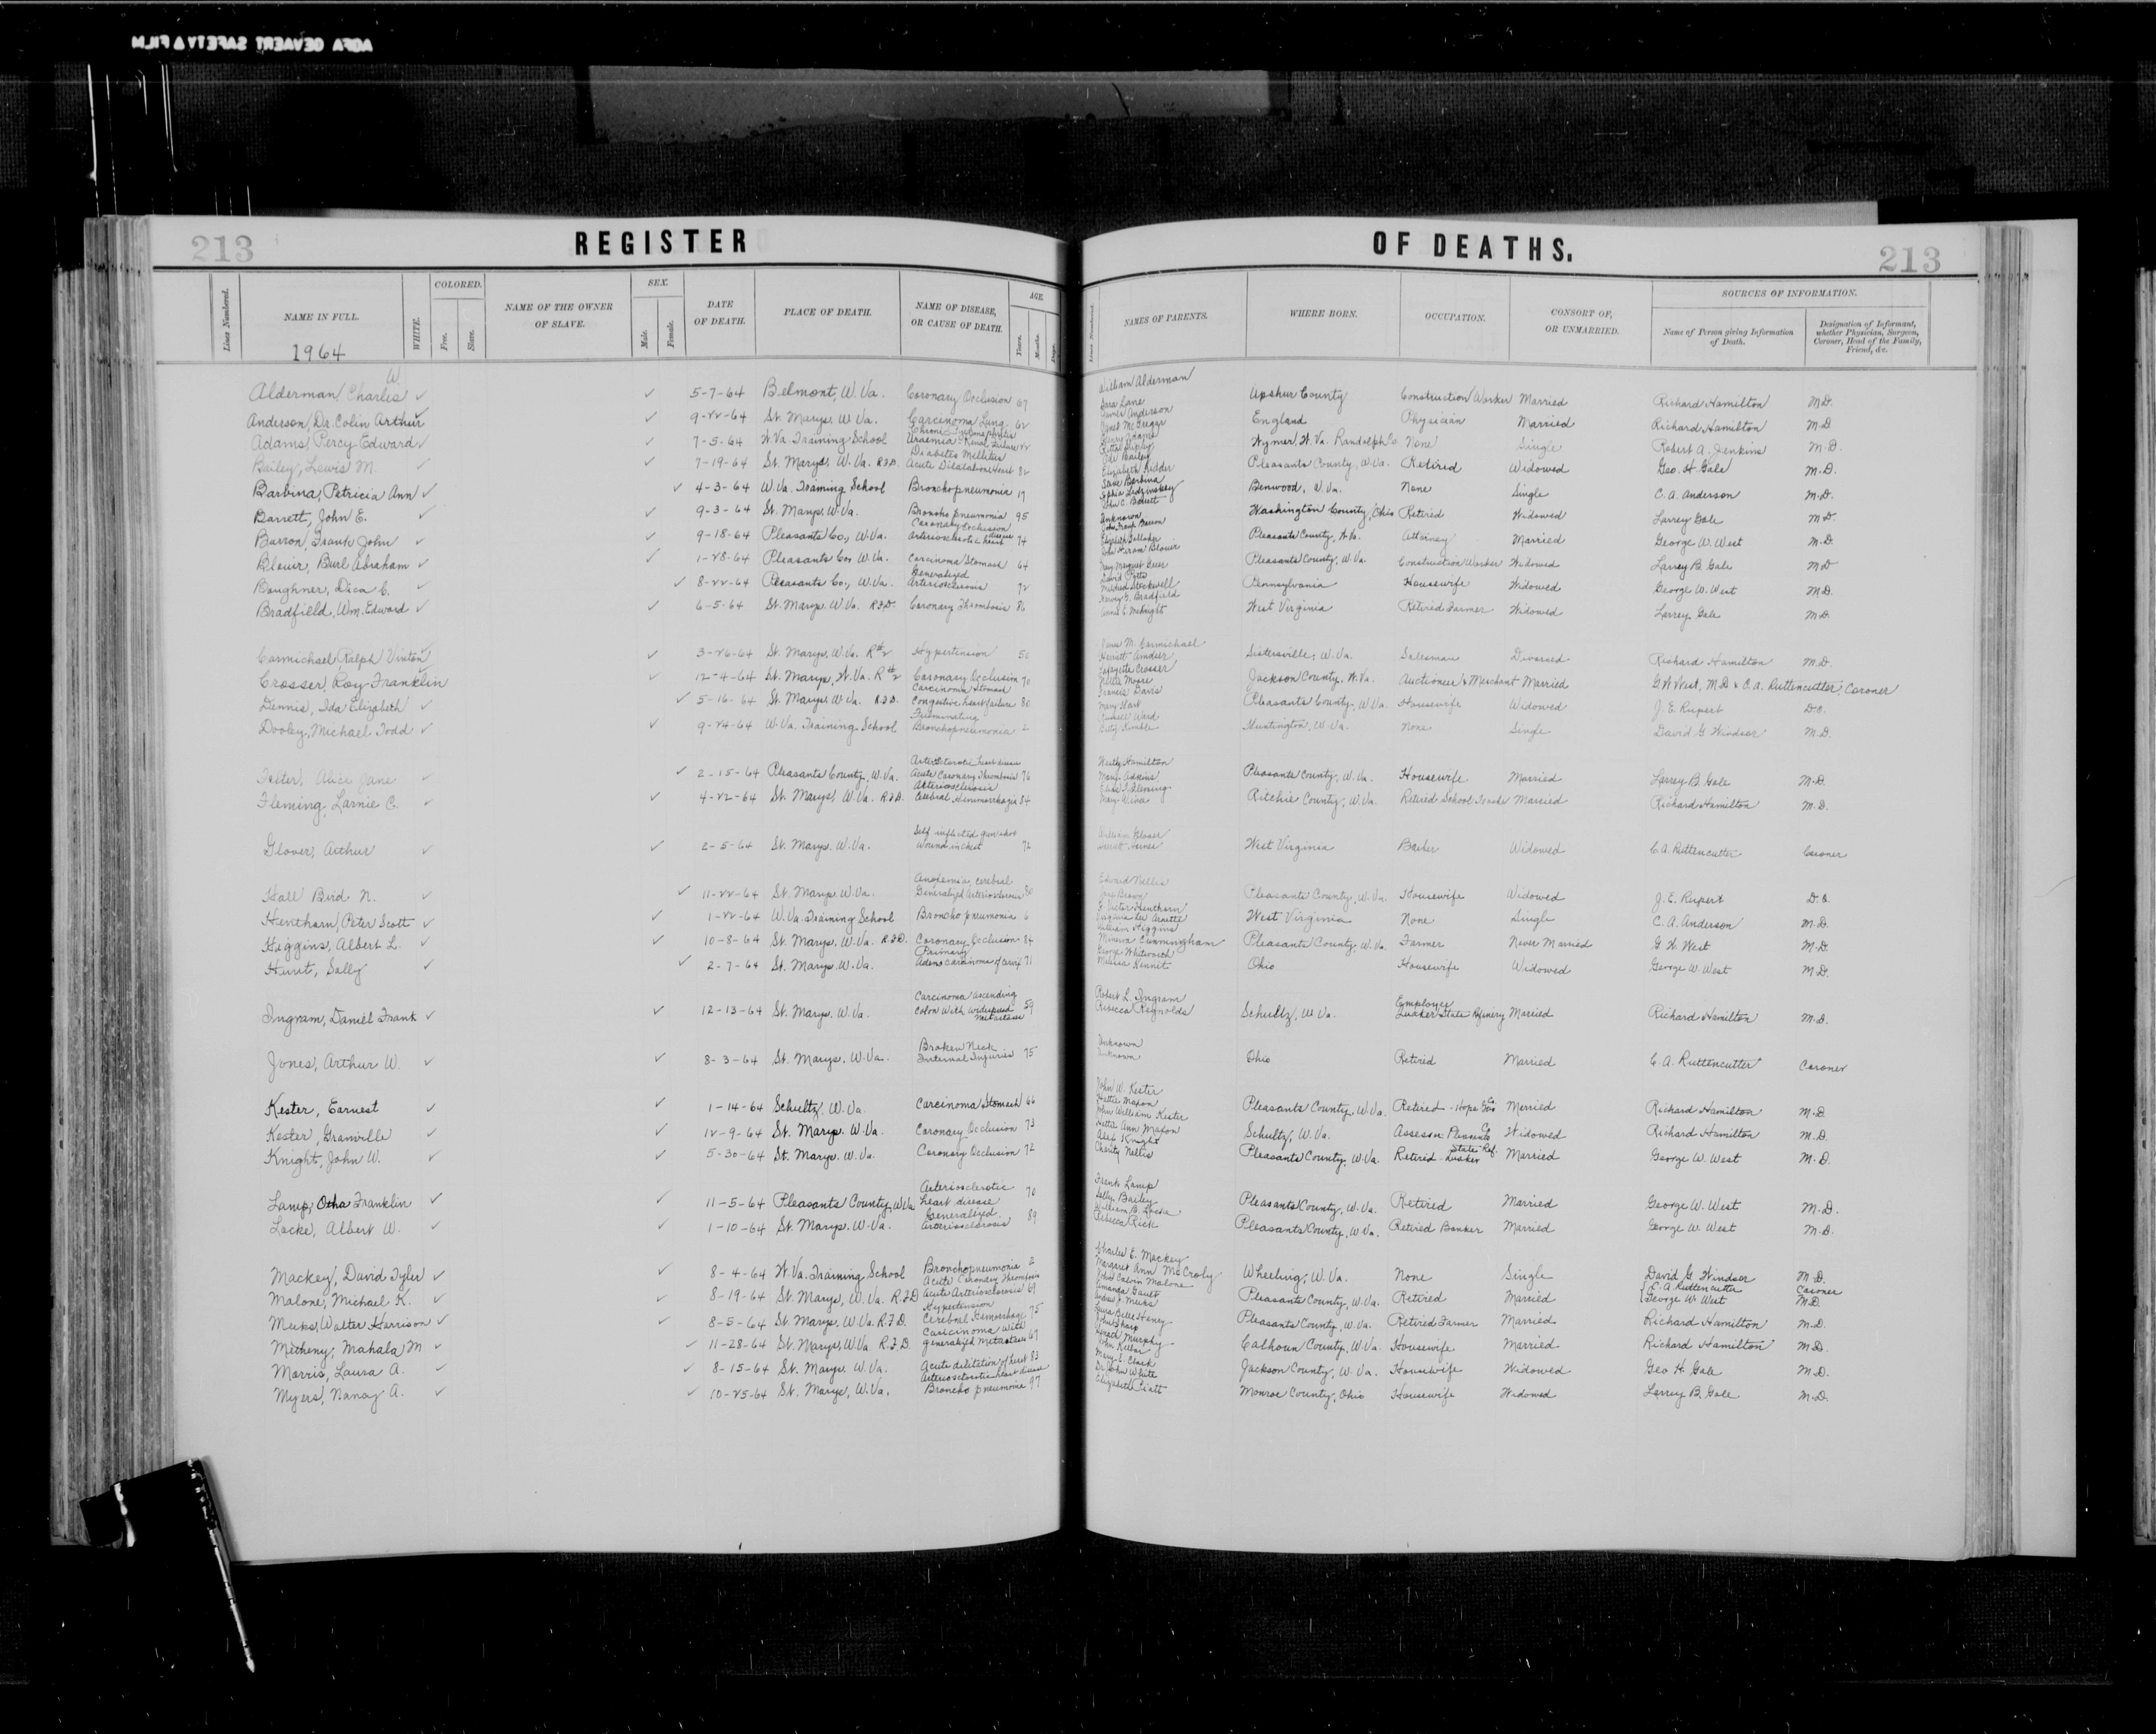 AGFA GEVAERT SAFETY FILM
213 REGISTER OF DEATHS. 213
Lines Numbered. NAME IN FULL. WHITE. COLORED. Free. Slave. NAME OF THE OWNER OF SLAVE. SEX. Male. Female. DATE OF DEATH. PLACE OF DEATH. NAME OF DISEASE, OR CAUSE OF DEATH. AGE. Years. Months. Days. Lines Numbered. NAMES OF PARENTS. WHERE BORN. OCCUPATION. CONSORT OF, OR UNMARRIED. SOURCES OF INFORMATION. Name of Person giving Information of Death. Designation of Informant, whether Physician, Surgeon, Coroner, Head of the Family, Friend, &c.
1964
Alderman, Charles W. ✓ ✓ 5-7-64 Belmont, W. Va. Coronary Occlusion 67 William Alderman Sara Lane Upshur County Construction Worker Married Richard Hamilton M.D.
Anderson, Dr. Colin Arthur ✓ ✓ 9-22-64 St. Marys, W. Va. Carcinoma Lung 62 James Anderson Janet McGregor England Physician Married Richard Hamilton M.D.
Adams, Percy Edward ✓ ✓ 7-5-64 W. Va. Training School Uraemia Adams Wymer, W. Va. Randolph Co. None Single Robert A. Jenkins M.D.
Bailey, Lewis M. ✓ ✓ 7-19-64 St. Marys, W. Va. R.F.D. Diabetes Mellitus Acute Dilatation Heart 82 Bailey Elizabeth Kidder Pleasants County, W. Va. Retired Widowed Geo. H. Gale M.D.
Barbina, Patricia Ann ✓ ✓ 4-3-64 W. Va. Training School Bronchopneumonia 19 Barbina Sophia Benwood, W. Va. None Single C. A. Anderson M.D.
Barrett, John E. ✓ ✓ 9-3-64 St. Marys, W. Va. Broncho pneumonia 95 John C. Barrett Unknown Washington County, Ohio Retired Widowed Larrey Gale M.D.
Barron, Frank John ✓ ✓ 9-18-64 Pleasants Co., W. Va. Coronary Occlusion Arteriosclerotic heart disease 74 John Frank Barron Elizabeth Gallaher Pleasants County, W. Va. Attorney Married George W. West M.D.
Blouir, Burl Abraham ✓ ✓ 1-28-64 Pleasants Co., W. Va. Carcinoma Stomach 64 John Hiram Blouir May Margaret Pleasants County, W. Va. Construction Worker Widowed Larrey B. Gale M.D.
Boughner, Dica C. ✓ ✓ 8-22-64 Pleasants Co., W. Va. Generalized Arteriosclerosis 92 David Pitts Mildred Stockwell Pennsylvania Housewife Widowed George W. West M.D.
Bradfield, Wm. Edward ✓ ✓ 6-5-64 St. Marys, W. Va. R.F.D. Coronary Thrombosis 80 Henry G. Bradfield Anna E. McKnight West Virginia Retired Farmer Widowed Larrey Gale M.D.
Carmichael, Ralph Vinton ✓ ✓ 3-26-64 St. Marys, W. Va. R#2 Hypertension 50 James M. Carmichael Harriett Sistersville, W. Va. Salesman Divorced Richard Hamilton M.D.
Crosser, Roy Franklin ✓ 12-4-64 St. Marys, W. Va. R#2 Coronary Occlusion 70 Lafayette Crosser Nellie Moore Jackson County, W. Va. Auctioneer & Merchant Married G. W. West, M.D. & C. A. Ruttencutter, Coroner
Dennis, Ida Elizabeth ✓ ✓ 5-16-64 St. Marys, W. Va. R.F.D. Carcinoma Stomach Congestive heart failure 80 Francis Davis Mary Hart Pleasants County, W. Va. Housewife Widowed J. E. Rupert D.O.
Dooley, Michael Todd ✓ ✓ 9-24-64 W. Va. Training School Fulminating Bronchopneumonia 2 Russell Ward Betty Kimble Huntington, W. Va. None Single David G. Windsor M.D.
Felter, Alice Jane ✓ ✓ 2-15-64 Pleasants County, W. Va. Arteriosclerotic heart disease Acute Coronary Thrombosis 76 Hamilton Mary Adkins Pleasants County, W. Va. Housewife Married Larrey B. Gale M.D.
Fleming, Larnie C. ✓ ✓ 4-22-64 St. Marys, W. Va. R.F.D. Arteriosclerosis Cerebral Hemmorrhagia 84 Fleming Mary Ritchie County, W. Va. Retired School Teacher Married Richard Hamilton M.D.
Glover, Arthur ✓ ✓ 2-5-64 St. Marys, W. Va. Self inflicted gun shot wound in chest 72 William Glover West Virginia Barber Widowed C. A. Ruttencutter Coroner
Hall Bird N. ✓ ✓ 11-22-64 St. Marys, W. Va. Anoxemia, cerebral Generalized Arteriosclerosis 80 Edward Nellis Jane Brown Pleasants County, W. Va. Housewife Widowed J. E. Rupert D.O.
Henthorn, Peter Scott ✓ ✓ 1-22-64 W. Va. Training School Broncho pneumonia 6 Victor Henthorn Virginia Lee Arnette West Virginia None Single C. A. Anderson M.D.
Higgins, Albert L. ✓ ✓ 10-8-64 St. Marys, W. Va. R.F.D. Coronary Occlusion 84 William Higgins Minerva Cunningham Pleasants County, W. Va. Farmer Never Married G. W. West M.D.
Hunt, Sally ✓ ✓ 2-7-64 St. Marys, W. Va. Primary Adeno carcinoma of cervix 71 George Whitworth Melissa Ohio Housewife Widowed George W. West M.D.
Ingram, Daniel Frank ✓ ✓ 12-13-64 St. Marys, W. Va. Carcinoma ascending colon with widespread metastasis 59 Robert L. Ingram Rebecca Reynolds Schultz, W. Va. Employee Quaker State Refinery Married Richard Hamilton M.D.
Jones, Arthur W. ✓ ✓ 8-3-64 St. Marys, W. Va. Broken Neck Internal Injuries 75 Unknown Unknown Ohio Retired Married C. A. Ruttencutter Coroner
Kester, Earnest ✓ ✓ 1-14-64 Schultz, W. Va. Carcinoma Stomach 66 John W. Kester Hettie Maxon Pleasants County, W. Va. Retired - Hope Gas Co. Married Richard Hamilton M.D.
Kester, Granville ✓ ✓ 12-9-64 St. Marys, W. Va. Coronary Occlusion 73 John William Kester Hettie Ann Maxon Schultz, W. Va. Assessor Pleasants Co Widowed Richard Hamilton M.D.
Knight, John W. ✓ ✓ 5-30-64 St. Marys, W. Va. Coronary Occlusion 72 Alex Knight Charity Nellis Pleasants County, W. Va. Retired - Quaker State Ref. Married George W. West M.D.
Lamp, Otha Franklin ✓ ✓ 11-5-64 Pleasants County, W. Va. Arteriosclerotic heart disease 70 Frank Lamp Sally Bailey Pleasants County, W. Va. Retired Married George W. West M.D.
Locke, Albert W. ✓ ✓ 1-10-64 St. Marys, W. Va. Generalized arteriosclerosis 89 William B. Locke Rebecca Rick Pleasants County, W. Va. Retired Banker Married George W. West M.D.
Mackey, David Tyler ✓ ✓ 8-4-64 W. Va. Training School Bronchopneumonia 2 Charles E. Mackey Margaret Ann McCroly Wheeling, W. Va. None Single David G. Windsor M.D.
Malone, Michael K. ✓ ✓ 8-19-64 St. Marys, W. Va. R.F.D. Acute Coronary Thrombosis Acute Arteriosclerosis 69 John Calvin Malone Amanda Gault Pleasants County, W. Va. Retired Married C. A. Ruttencutter Coroner George W. West M.D.
Meeks, Walter Harrison ✓ ✓ 8-5-64 St. Marys, W. Va. R.F.D. Hypertension Cerebral Hemorrhage 75 Meeks Laura Belle Haney Pleasants County, W. Va. Retired Farmer Married Richard Hamilton M.D.
Metheny, Mahala M ✓ ✓ 11-28-64 St. Marys, W. Va. R.F.D. Carcinoma with generalized metastasis 67 John Sharp Murphy Calhoun County, W. Va. Housewife Married Richard Hamilton M.D.
Morris, Laura A. ✓ ✓ 8-15-64 St. Marys, W. Va. Acute dilitation of heart 83 John Keller Mary E. Clark Jackson County, W. Va. Housewife Widowed Geo H. Gale M.D.
Myers, Nancy A. ✓ ✓ 10-25-64 St. Marys, W. Va. Arteriosclerotic heart disease Broncho pneumonia 97 Dr. John White Elizabeth Piatt Monroe County, Ohio Housewife Widowed Larrey B. Gale M.D.